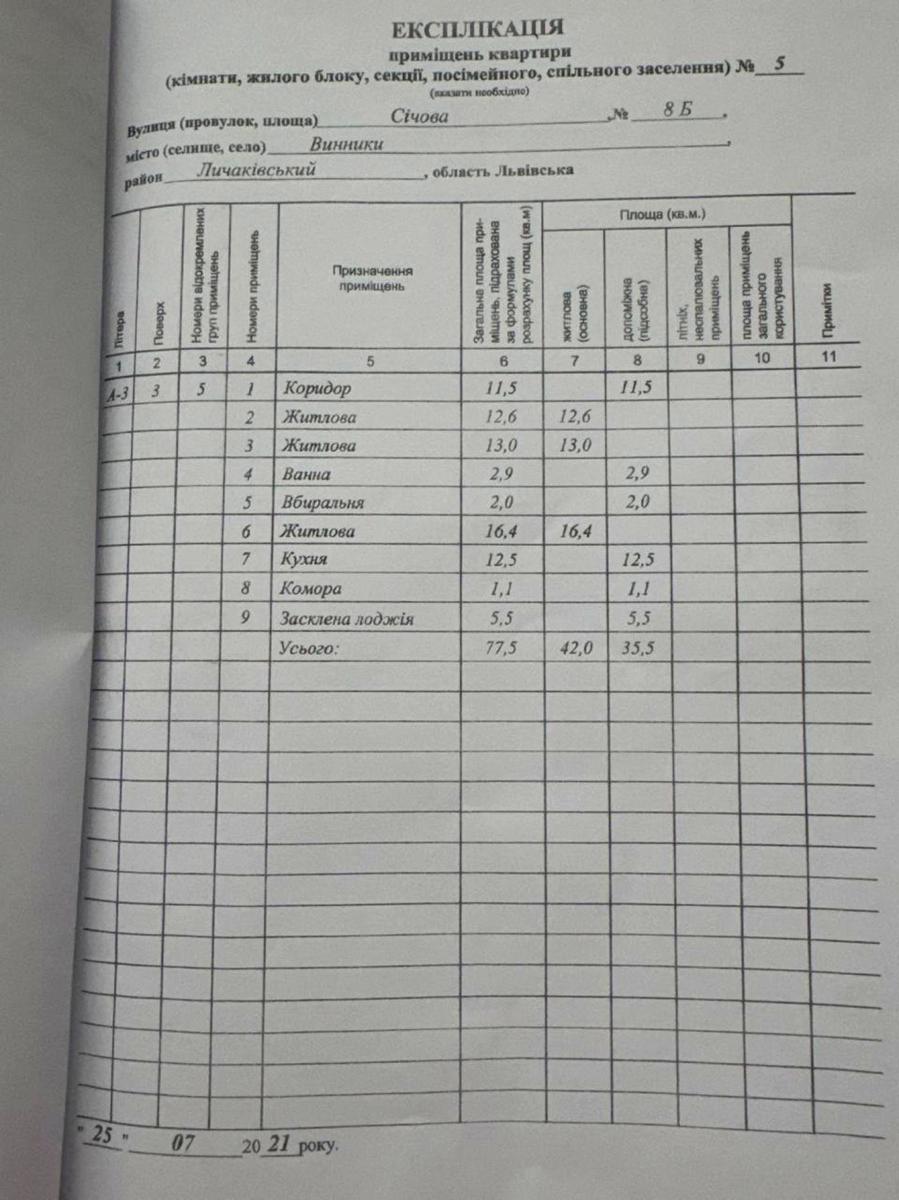 ЕКСПЛІКАЦІЯ
приміщень квартири
(кімнати, жилого блоку, секції, посімейного, спільного заселення) № 5
(вказати необхідно)
Вулиця (провулок, площа) Січова № 8 Б ,
місто (селище, село) Винники ,
район Личаківський , область Львівська
Літера Поверх Номери відокремлених груп приміщень Номери приміщень Призначення приміщень Загальна площа при-міщень, підрахована за формулами розрахунку площ (кв.м) Площа (кв.м.) Примітки
житлова (основна) допоміжна (підсобна) літніх, неопалювальних приміщень площа приміщень загального користування
1 2 3 4 5 6 7 8 9 10 11
А-3 3 5 1 Коридор 11,5 11,5
2 Житлова 12,6 12,6
3 Житлова 13,0 13,0
4 Ванна 2,9 2,9
5 Вбиральня 2,0 2,0
6 Житлова 16,4 16,4
7 Кухня 12,5 12,5
8 Комора 1,1 1,1
9 Засклена лоджія 5,5 5,5
Усього: 77,5 42,0 35,5
" 25 " 07 20 21 року.